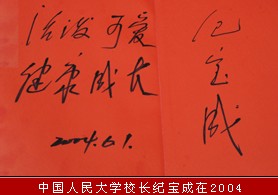 活泼可爱
健康成长
2004.6.1.
纪宝成
中国人民大学校长纪宝成在2004